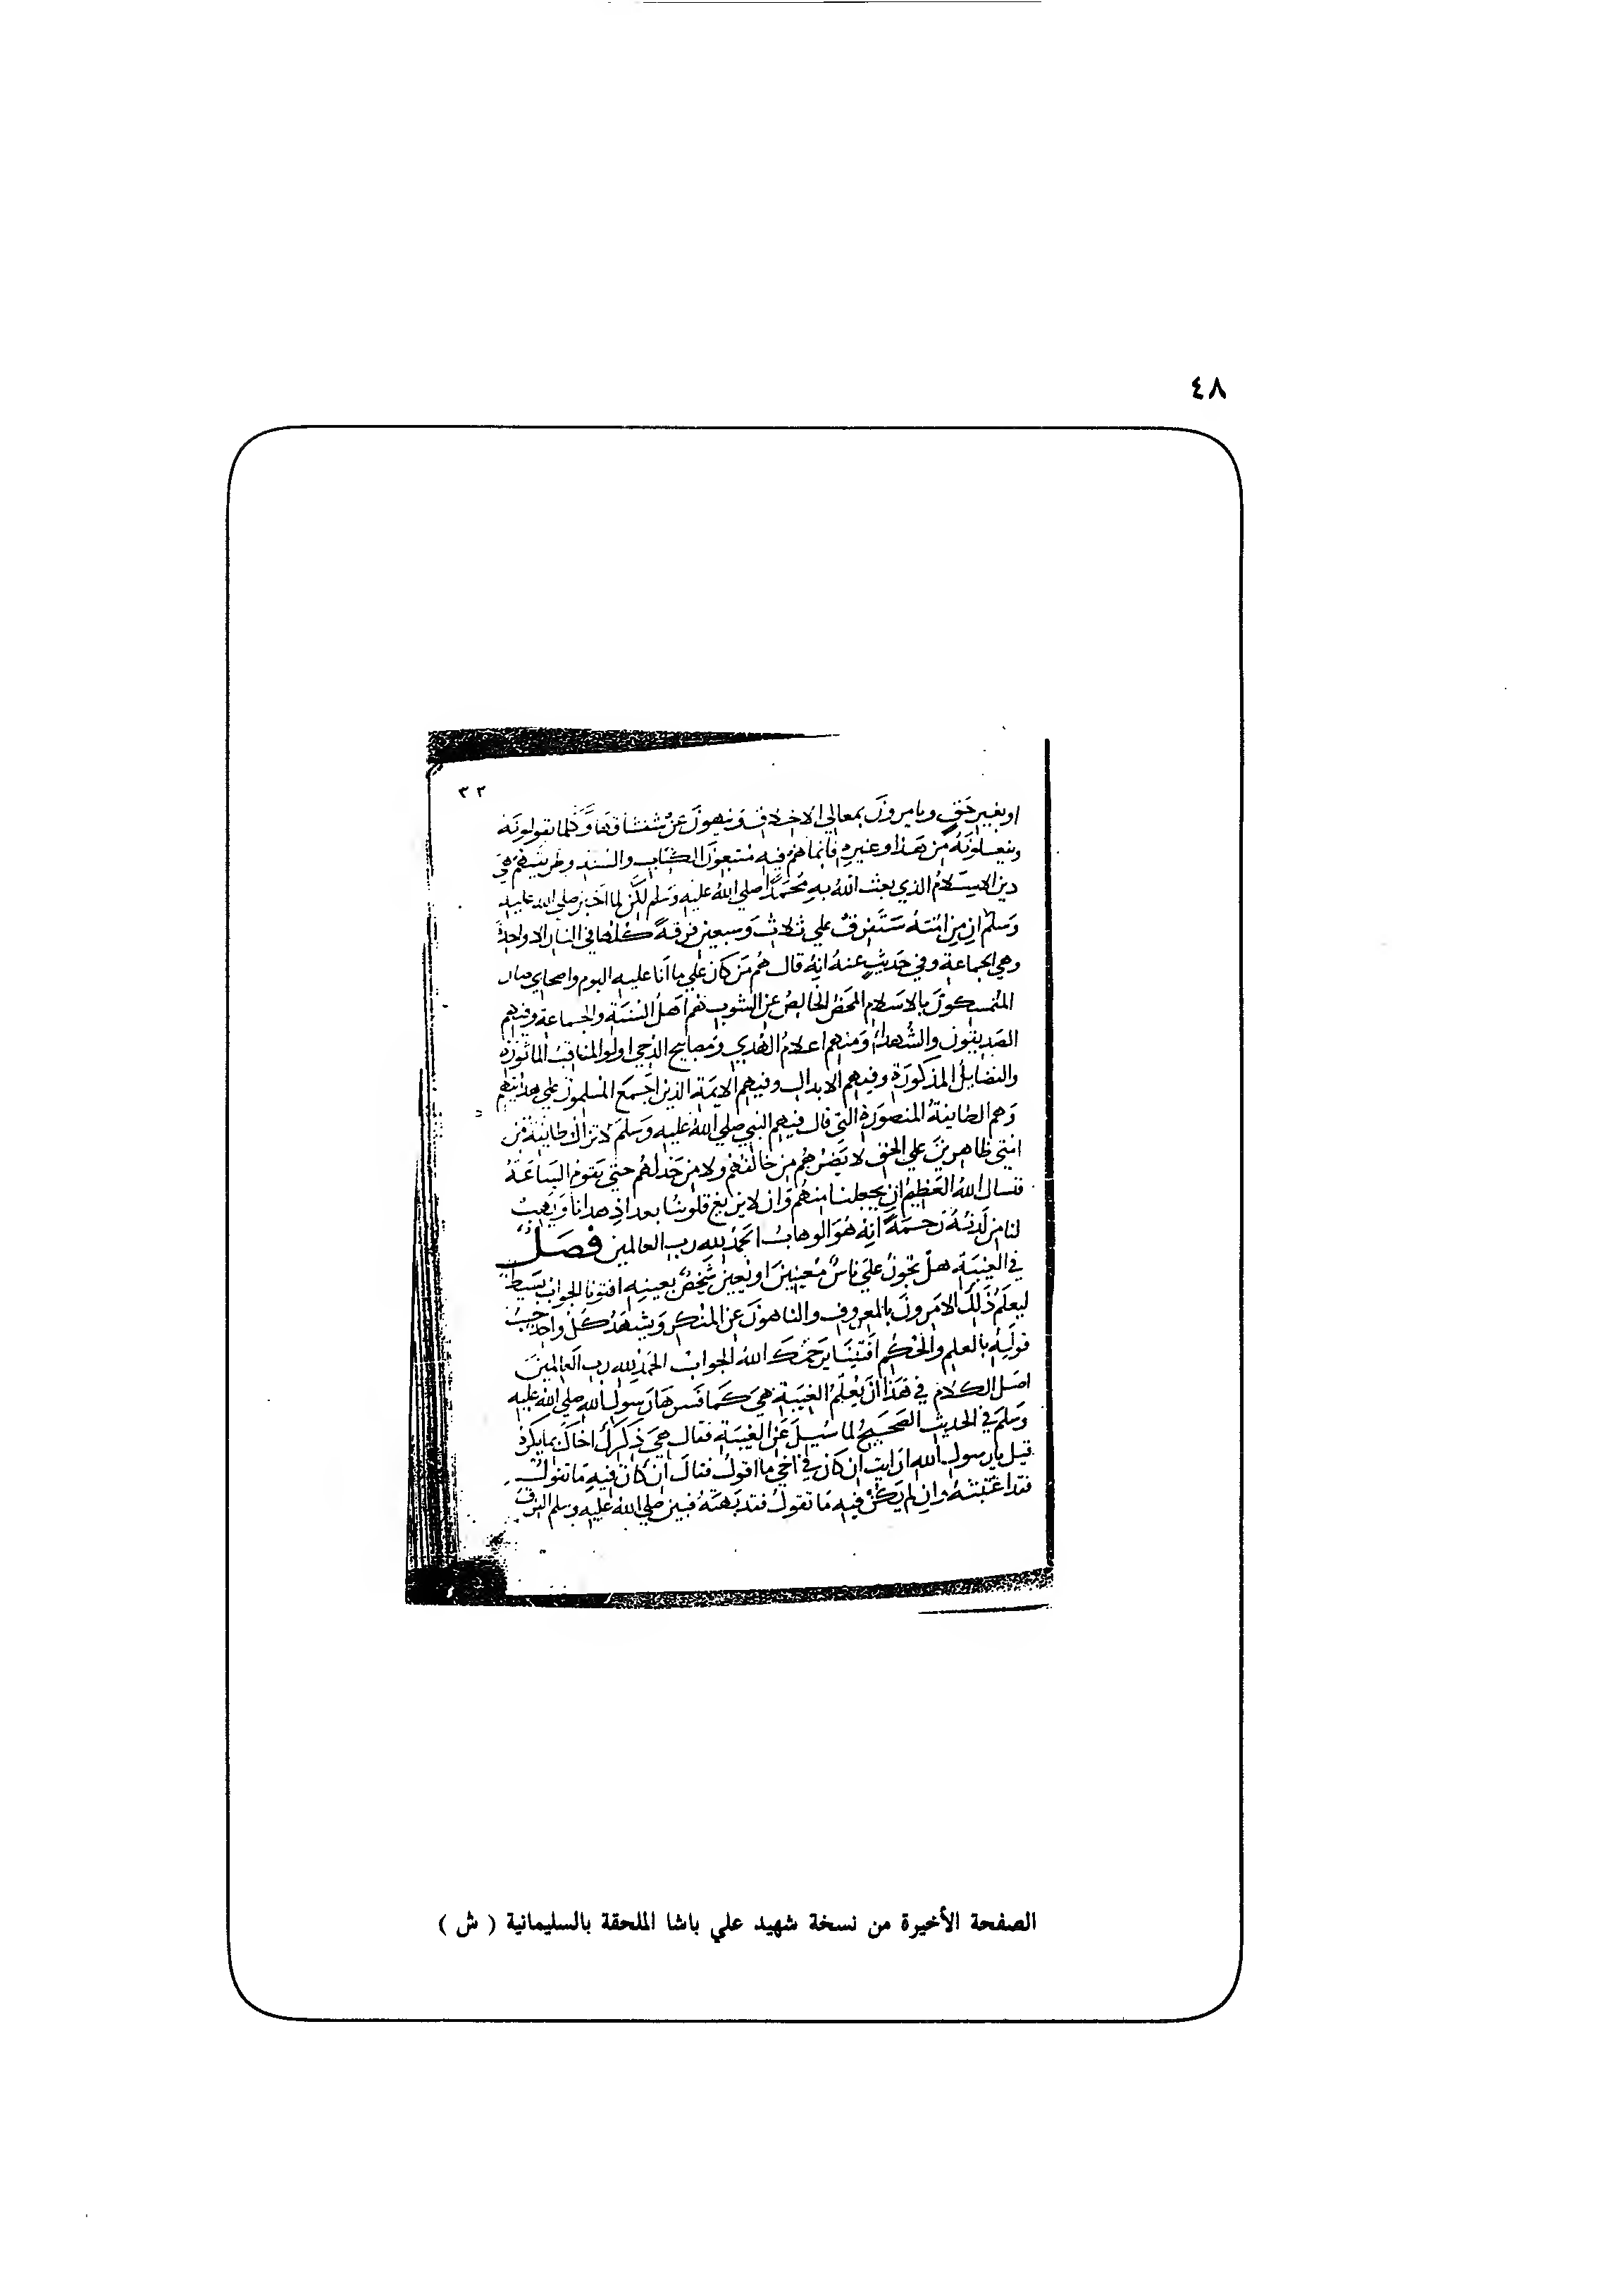 ٤٨
٣٣
او بغير حق ويامرون بمعالي الاخلاق وينهون عن سفسافها وكلما يقولونه
ويفعلونه من هذا وغيره فانما هم فيه متبعون الكتاب والسنه وطريقهم هي
دين الاسلام الذي بعث الله به محمدا صلي الله عليه وسلم لكن لما اخبر صلي الله عليه
وسلم ان من امته ستفترق علي ثلاث وسبعين فرقة كلها في النار الا واحدة
وهي الجماعة وفي حديث عنه انه قال هم من كان علي ما انا عليه اليوم واصحابي صار
المتمسكون بالاسلام المحض الخالص عن الشوب هم اهل السنة والجماعة وفيهم
الصديقون والشهداء ومنهم اعلام الهدي ومصابيح الدجي اولوا المناقب الماثورة
والفضايل المذكورة وفيهم الابدال وفيهم الايمة الذين اجمع المسلمون علي هدايتهم
وهم الطايفة المنصورة التي قال فيهم النبي صلي الله عليه وسلم لا تزال طايفة من
امتي ظاهرين علي الحق لا يضرهم من خالفهم ولا من خذلهم حتي تقوم الساعة
فنسال الله العظيم ان يجعلنا منهم وان لا يزيغ قلوبنا بعد اذ هدانا ويهب
لنا من لدنه رحمة انه هو الوهاب الحمد لله رب العالمين فصل
في الغيبة هل تجوز علي ناس معينين او تعيين شخص بعينه افتونا الجواب بسيط
ليعلم ذلك الامرون بالمعروف والناهون عن المنكر ويشهد كل واحد حسب
قوله بالعلم والحكم افتينا يرحمك الله الجواب الحمد لله رب العالمين
اصل الكلام في هذا ان يعلم الغيبة هي كما فسرها رسول الله صلي الله عليه
وسلم في الحديث الصحيح لما سيل عن الغيبة فقال هي ذكرك اخاك بما يكره
قيل يا رسول الله ارايت ان كان في اخي ما اقول فقال ان كان فيه ما تقول
فقد اغتبته وان لم يكن فيه ما تقول فقد بهته فبين صلي الله عليه وسلم الفرق
الصفحة الأخيرة من نسخة شهيد علي باشا الملحقة بالسليمانية ( ش )